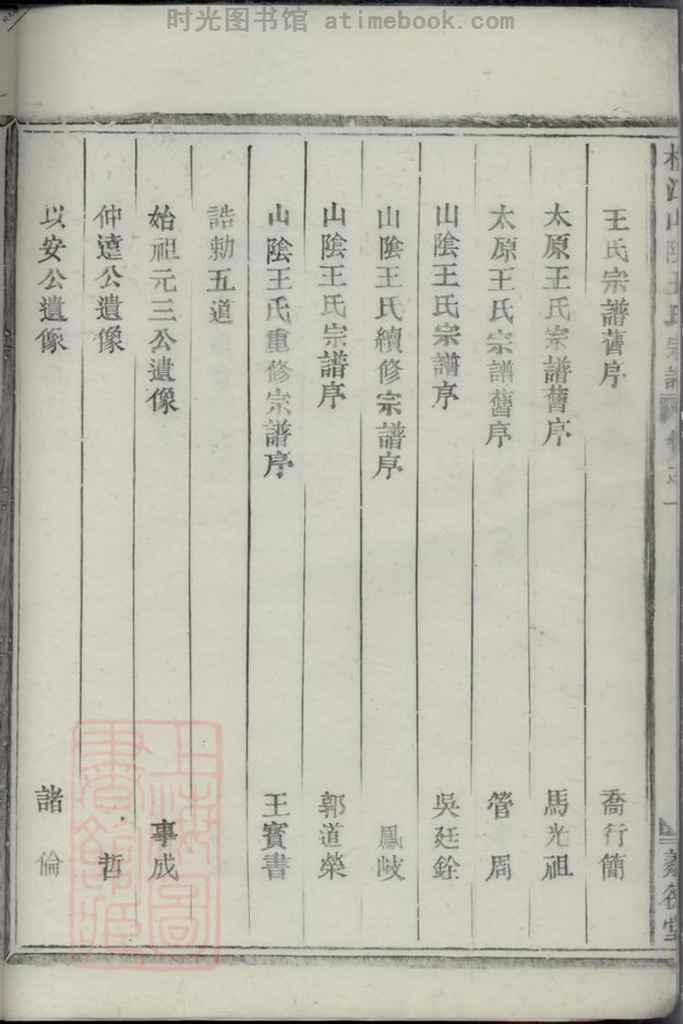 时光图书馆 atimebook.com
王氏宗譜舊序 喬行簡
太原王氏宗譜舊序 馬光祖
太原王氏宗譜舊序 管周
山陰王氏宗譜序 吳廷銓
山陰王氏續修宗譜序 鳳岐
山陰王氏宗譜序 郭道榮
山陰王氏重修宗譜序 王賓書
誥勅五道
始祖元三公遺像 事成
仲達公遺像 哲
以安公遺像 諸倫
上海圖書館藏